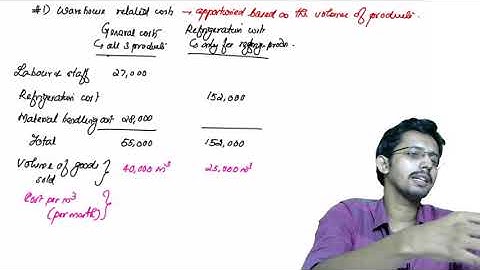 #1) Warehouse related costs → apportioned based on the volume of products.
General costs Refrigeration cost
↳ all 3 products ↳ only for refrige. prodn.
Labour & staff 27,000
Refrigeration cost 152,000
Material handling cost 28,000
Total 55,000 152,000
Volume of goods sold } 40,000 m³ 25,000 m³
Cost per m³
(per month) }